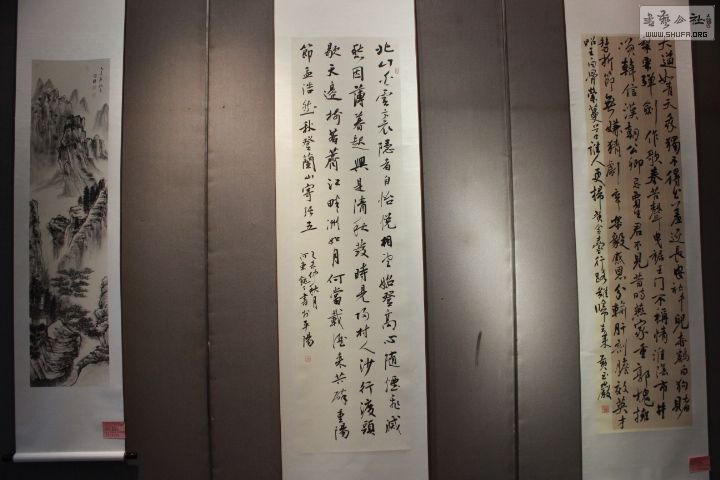 大道如青天我獨不得出羞逐長安社中兒赤雞白狗賭
梨栗彈劍作歌奏苦聲曳裾王門不稱情淮陰市井
笑韓信漢朝公卿忌賈生君不見昔時燕家重郭隗擁
篲折節無嫌猜劇辛樂毅感恩分輸肝剖膽效英才
昭王白骨縈蔓草誰人更掃黃金臺行路難歸去來
北山白雲裏隱者自怡悅相望始登高心隨雁飛滅
愁因薄暮起興是清秋發時見歸村人沙行渡頭
歇天邊樹若薺江畔洲如月何當載酒來共醉重陽
節孟浩然秋登蘭山寄張五
乙未仲秋月
書於平陽
书艺公社
WWW.SHUFA.ORG